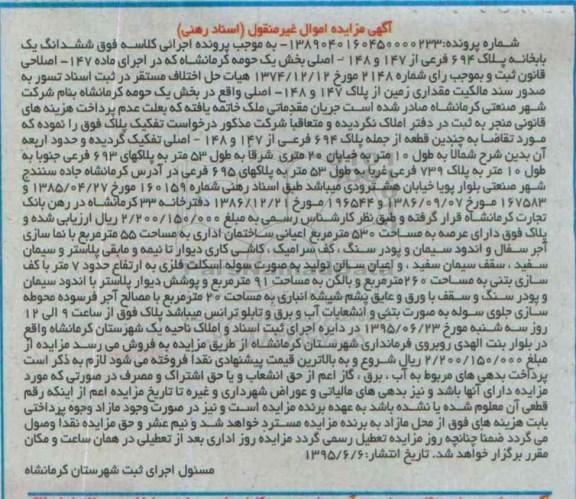 آگهی مزایده اموال غیرمنقول (اسناد رهنی)
شماره پرونده:۱۳۸۹۰۴۰۱۶۰۴۵۰۰۰۰۲۳۳- به موجب پرونده اجرائی کلاسه فوق ششدانگ یک
بابخانه پلاک ۶۹۴ فرعی از ۱۴۷ و ۱۴۸ - اصلی بخش یک حومه کرمانشاه که در اجرای ماده ۱۴۷- اصلاحی
قانون ثبت و بموجب رای شماره ۲۱۴۸ مورخ ۱۳۷۴/۱۲/۱۲ هیات حل اختلاف مستقر در ثبت اسناد تسور به
صدور سند مالکیت مقداری زمین از پلاک ۱۴۷ و ۱۴۸- اصلی واقع در بخش یک حومه کرمانشاه بنام شرکت
شهر صنعتی کرمانشاه صادر شده است جریان مقدماتی ملک خاتمه یافته که بعلت عدم پرداخت هزینه های
قانونی منجر به ثبت در دفتر املاک نگردیده و متعاقبا شرکت مذکور درخواست تفکیک پلاک فوق را نموده که
مورد تقاضا به چندین قطعه از جمله پلاک ۶۹۴ فرعی از ۱۴۷ و ۱۴۸ - اصلی تفکیک گردیده و حدود اربعه
آن بدین شرح شمالا به طول ۱۰ متر به خیابان ۲۰ متری شرقا به طول ۵۳ متر به پلاکهای ۶۹۳ فرعی جنوبا به
طول ۱۰ متر به پلاک ۷۳۹ فرعی غربا به طول ۵۳ متر به پلاکهای ۶۹۵ فرعی در آدرس کرمانشاه جاده سنندج
شهر صنعتی بلوار پویا خیابان هشترودی میباشد طبق اسناد رهنی شماره ۱۶۰۱۵۹ مورخ ۱۳۸۵/۰۴/۲۷ و
۱۶۷۵۸۳ مورخ ۱۳۸۶/۰۹/۰۷ و ۱۹۶۵۴۴ مورخ ۱۳۸۶/۱۲/۲۱ دفترخانه ۳۳ کرمانشاه در رهن بانک
تجارت کرمانشاه قرار گرفته و طبق نظر کارشناس رسمی به مبلغ ۲/۲۰۰/۱۵۰/۰۰۰ ریال ارزیابی شده و
پلاک فوق دارای عرصه به مساحت ۵۳۰ مترمربع اعیانی ساختمان اداری به مساحت ۵۵ مترمربع با نما سازی
آجر سفال و اندود سیمان و پودر سنگ ، کف سرامیک ، کاشی کاری دیوار تا نیمه و مابقی پلاستر و سیمان
سفید ، سقف سیمان سفید ، و اعیان سالن تولید به صورت سوله اسکلت فلزی به ارتفاع حدود ۷ متر با کف
سازی بتنی به مساحت ۲۶۰ مترمربع و بالکن به مساحت ۹۱ مترمربع و پوشش دیوار پلاستر با اندود سیمان
و پودر سنگ و سقف با ورق و عایق پشم شیشه انباری به مساحت ۲۰ مترمربع با مصالح آجر فرسوده محوطه
سازی جلوی سوله به صورت بتنی و انشعابات آب و برق و تابلو ترانس میباشد پلاک فوق از ساعت ۹ الی ۱۲
روز سه شنبه مورخ ۱۳۹۵/۰۶/۲۳ در دایره اجرای ثبت اسناد و املاک ناحیه یک شهرستان کرمانشاه واقع
در بلوار بنت الهدی روبروی فرمانداری شهرستان کرمانشاه از طریق مزایده به فروش می رسد مزایده از
مبلغ ۲/۲۰۰/۱۵۰/۰۰۰ ریال شروع و به بالاترین قیمت پیشنهادی نقدا فروخته می شود لازم به ذکر است
پرداخت بدهی های مربوط به آب ، برق ، گاز اعم از حق انشعاب و یا حق اشتراک و مصرف در صورتی که مورد
مزایده دارای آنها باشد و نیز بدهی های مالیاتی و عوراض شهرداری و غیره تا تاریخ مزایده اعم از اینکه رقم
قطعی آن معلوم شده یا نشده باشد به عهده برنده مزایده است و نیز در صورت وجود مازاد وجوه پرداختی
بابت هزینه های فوق از محل مازاد به برنده مزایده مسترد خواهد شد و نیم عشر و حق مزایده نقدا وصول
می گردد ضمنا چنانچه روز مزایده تعطیل رسمی گردد مزایده روز اداری بعد از تعطیلی در همان ساعت و مکان
مقرر برگزار خواهد شد. تاریخ انتشار:۱۳۹۵/۶/۶
مسئول اجرای ثبت شهرستان کرمانشاه